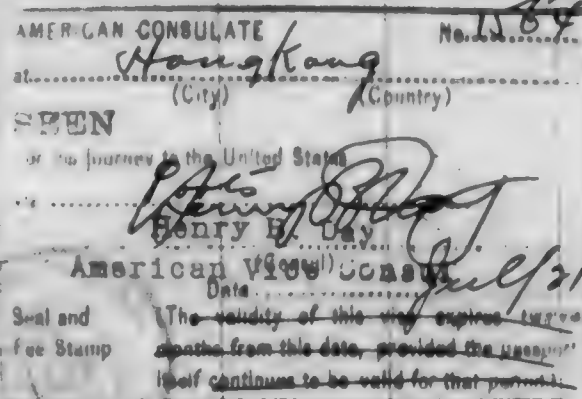 AMERICAN CONSULATE No.
at Hongkong
(City) (Country)
SEEN
for his journey to the United States
via
Henry B. Day
American Vice Consul
(Consul)
Date July 21
Seal and Fee Stamp
(The validity of this visa expires twelve
months from this date, provided the passport
itself continues to be valid for that period.)